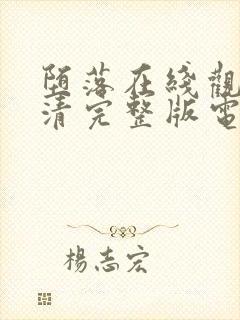 堕落在綫觀
清完整版電
楊志宏